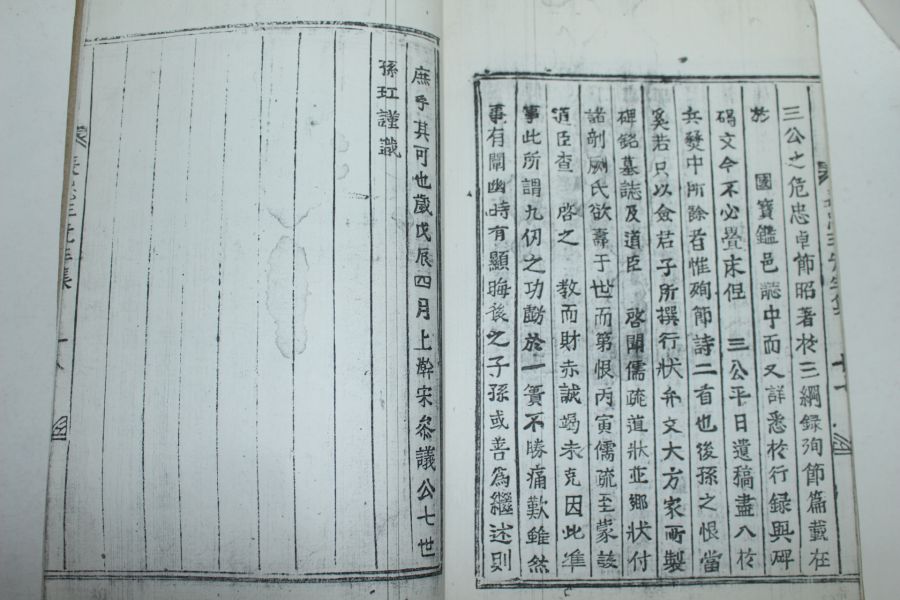 三公之危忠卓節昭著於三綱録殉節篇載在
於 國寶鑑邑誌中而又詳悉於行録與碑
碣文今不必疊床但 三公平日遺稿盡入於
兵燹中所餘者惟殉節詩二首也後孫之恨當
奚若只以僉君子所撰行狀弁文大方家所製
碑銘墓誌及道臣 啓聞儒疏道狀並鄉狀付
諸剞劂氏欲壽于世而第恨丙寅儒疏至蒙該
道臣查 啓之 教而財赤誠竭未克因此準
事此所謂九仞之功虧於一簣不勝痛歎雖然
事有闡幽時有顯晦後之子孫或善爲繼述則
庶乎其可也歲戊辰四月上澣宋參議公七世
孫玒謹識